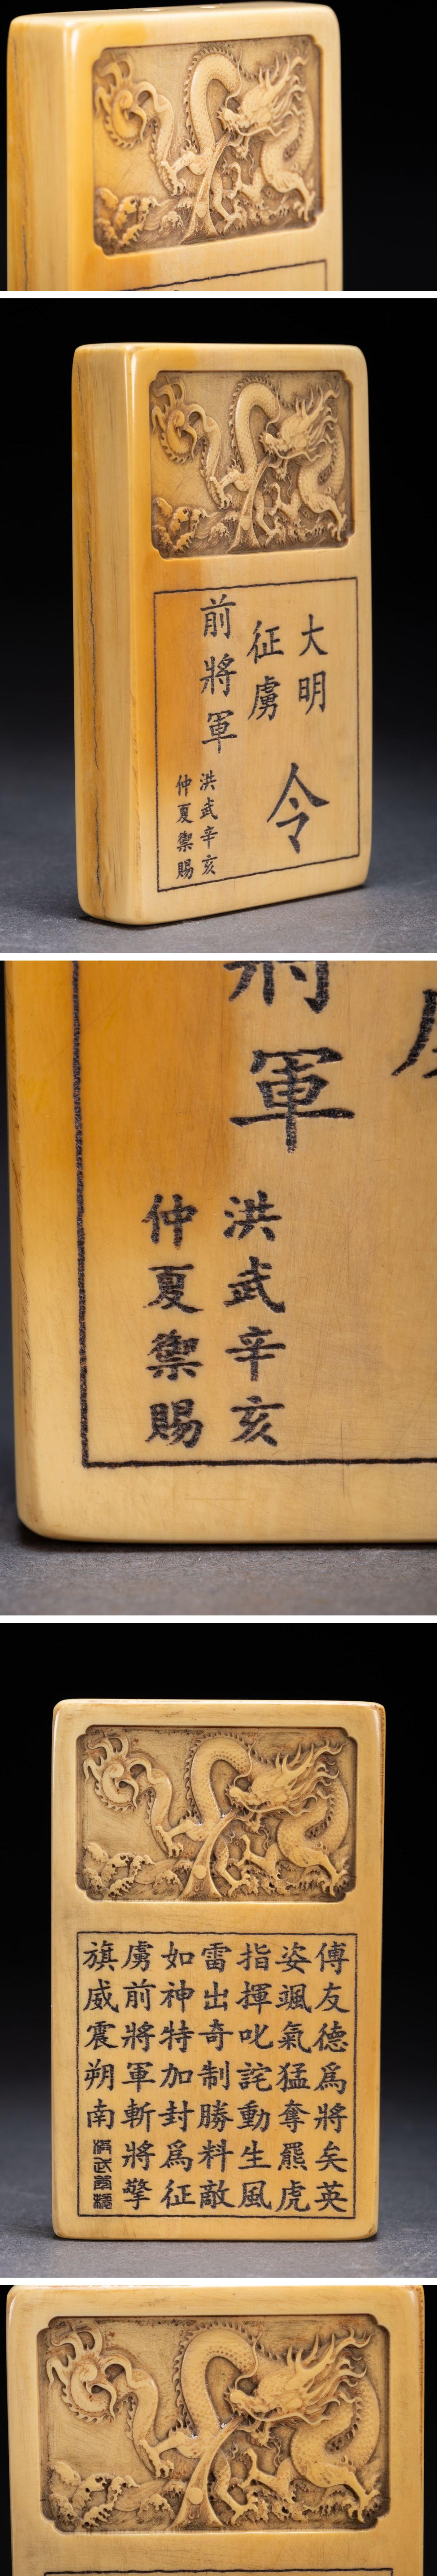 大明
征虜
前將軍
令
洪武辛亥
仲夏禦賜
將
軍
洪武辛亥
仲夏禦賜
傅友德爲將矣英
姿颯氣猛奪羆虎
指揮叱詫動生風
雷出奇制勝料敵
如神特加封爲征
虜前將軍斬將擎
旗威震朔南